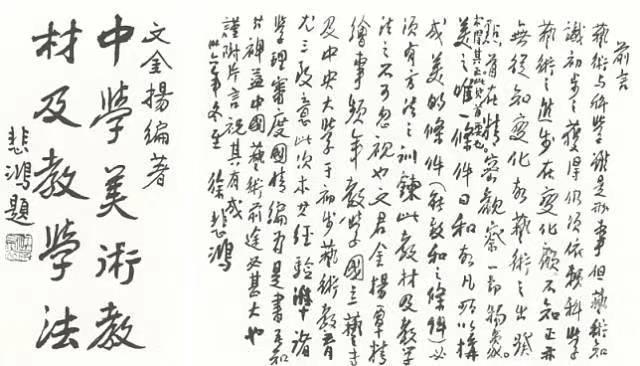 前言
藝術與科學雖是兩事但藝術知
識初步之獲得仍須依賴科學
藝術之進步在變化顧不知正亦
無從知變化故藝術之出發
點首在精密觀察一切物象。
美之唯一條件曰和故凡所以構
成美的條件（能致和之條件）必
須有方法之訓鍊此教材及教學
法之不可忽視也文君金揚覃精
繪事頻年教學國立藝專
及中央大學于初步藝術教育
尤三致意此次本其經驗滙諸
學理審度國情編為是書吾知
其裨益中國藝術前途必甚大也
謹附片言祝其有成
年冬至 徐悲鴻
文金揚編著
中學美術教
材及教學法
悲鴻題